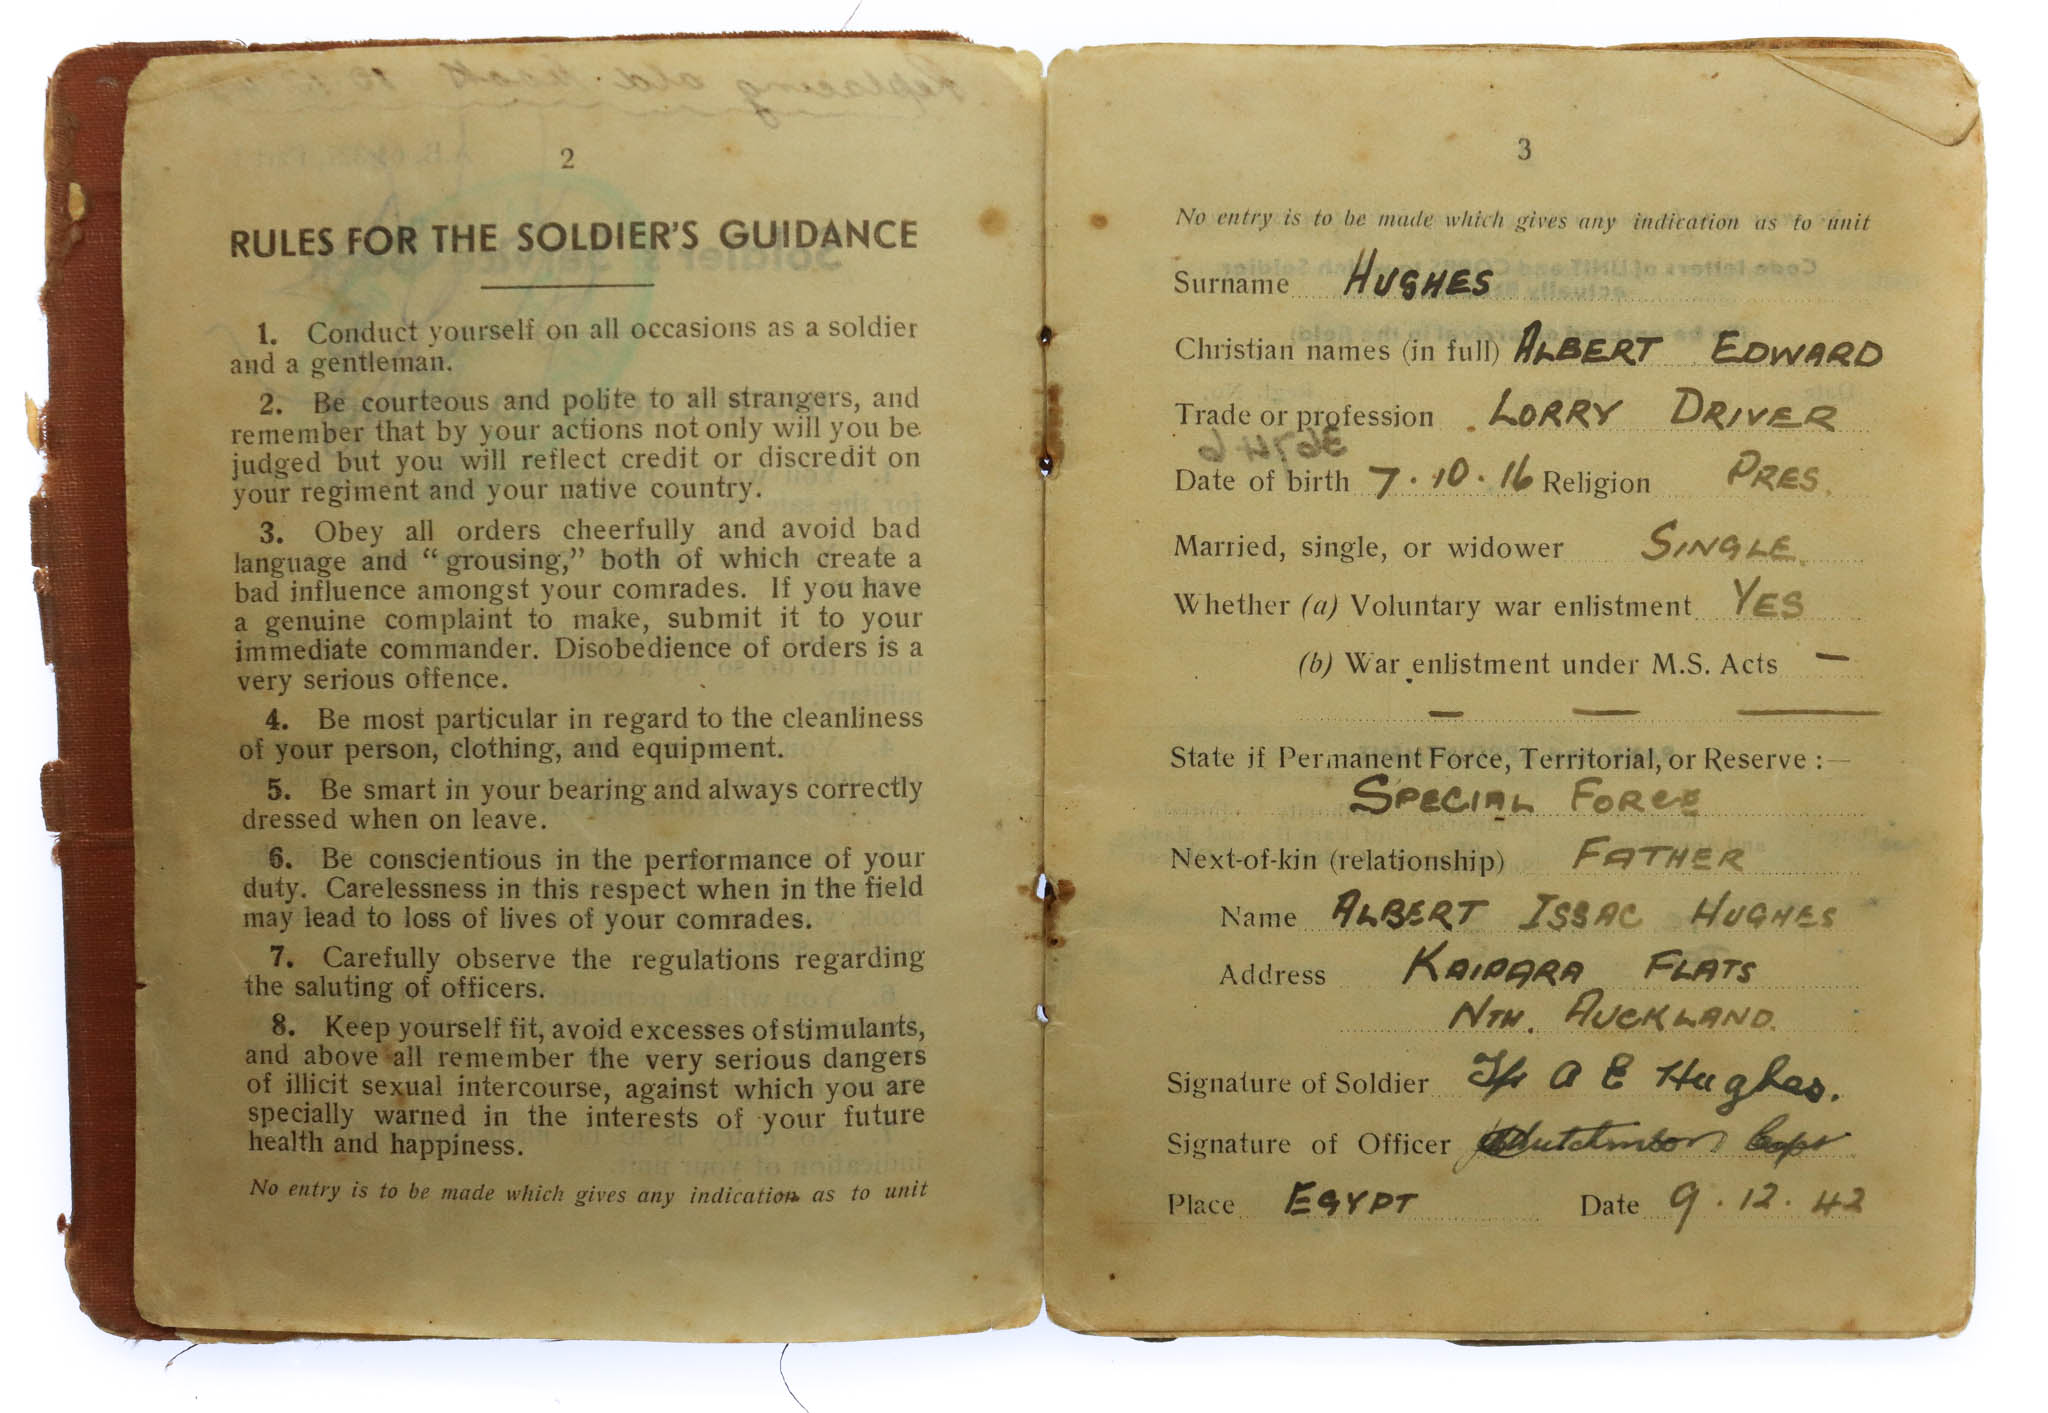 Replacing old book
2
RULES FOR THE SOLDIER'S GUIDANCE
1. Conduct yourself on all occasions as a soldier
and a gentleman.
2. Be courteous and polite to all strangers, and
remember that by your actions not only will you be
judged but you will reflect credit or discredit on
your regiment and your native country.
3. Obey all orders cheerfully and avoid bad
language and “grousing,” both of which create a
bad influence amongst your comrades. If you have
a genuine complaint to make, submit it to your
immediate commander. Disobedience of orders is a
very serious offence.
4. Be most particular in regard to the cleanliness
of your person, clothing, and equipment.
5. Be smart in your bearing and always correctly
dressed when on leave.
6. Be conscientious in the performance of your
duty. Carelessness in this respect when in the field
may lead to loss of lives of your comrades.
7. Carefully observe the regulations regarding
the saluting of officers.
8. Keep yourself fit, avoid excesses of stimulants,
and above all remember the very serious dangers
of illicit sexual intercourse, against which you are
specially warned in the interests of your future
health and happiness.
No entry is to be made which gives any indication as to unit
3
No entry is to be made which gives any indication as to unit
Surname HUGHES
Christian names (in full) ALBERT EDWARD
Trade or profession LORRY DRIVER
36746
Date of birth 7.10.16 Religion PRES.
Married, single, or widower SINGLE.
Whether (a) Voluntary war enlistment YES
(b) War enlistment under M.S. Acts —
— — —
State if Permanent Force, Territorial, or Reserve :—
SPECIAL FORCE
Next-of-kin (relationship) FATHER
Name ALBERT ISSAC HUGHES
Address KAIPARA FLATS
NTH. AUCKLAND.
Signature of Soldier A E Hughes.
Signature of Officer Hutchinson Capt
Place EGYPT Date 9.12.42